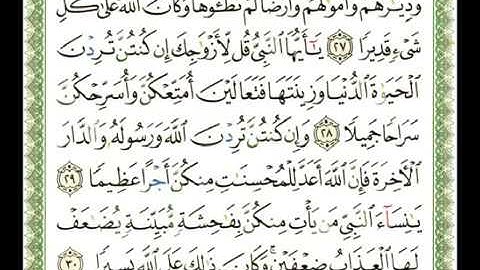 وَدِيَٰرَهُمْ وَأَمْوَٰلَهُمْ وَأَرْضًا لَّمْ تَطَـُٔوهَا وَكَانَ ٱللَّهُ عَلَىٰ كُلِّ
شَىْءٍ قَدِيرًا ٢٧ يَـٰٓأَيُّهَا ٱلنَّبِىُّ قُل لِّأَزْوَٰجِكَ إِن كُنتُنَّ تُرِدْنَ
ٱلْحَيَوٰةَ ٱلدُّنْيَا وَزِينَتَهَا فَتَعَالَيْنَ أُمَتِّعْكُنَّ وَأُسَرِّحْكُنَّ
سَرَاحًا جَمِيلًا ٢٨ وَإِن كُنتُنَّ تُرِدْنَ ٱللَّهَ وَرَسُولَهُۥ وَٱلدَّارَ
ٱلْـَٔاخِرَةَ فَإِنَّ ٱللَّهَ أَعَدَّ لِلْمُحْسِنَـٰتِ مِنكُنَّ أَجْرًا عَظِيمًا ٢٩
يَـٰنِسَآءَ ٱلنَّبِىِّ مَن يَأْتِ مِنكُنَّ بِفَـٰحِشَةٍ مُّبَيِّنَةٍ يُضَـٰعَفْ
لَهَا ٱلْعَذَابُ ضِعْفَيْنِ ۚ وَكَانَ ذَٰلِكَ عَلَى ٱللَّهِ يَسِيرًا ٣٠